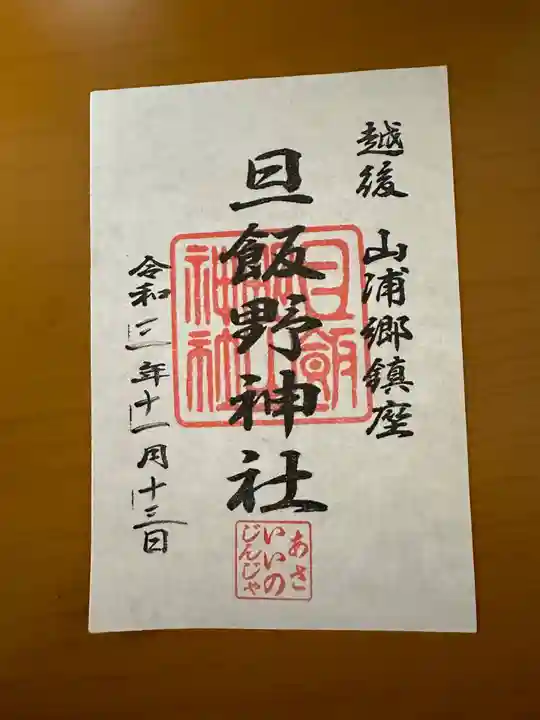 越後 山浦郷鎮座
旦飯野神社
あさ
いいの
じんじゃ
令和三年十一月十三日